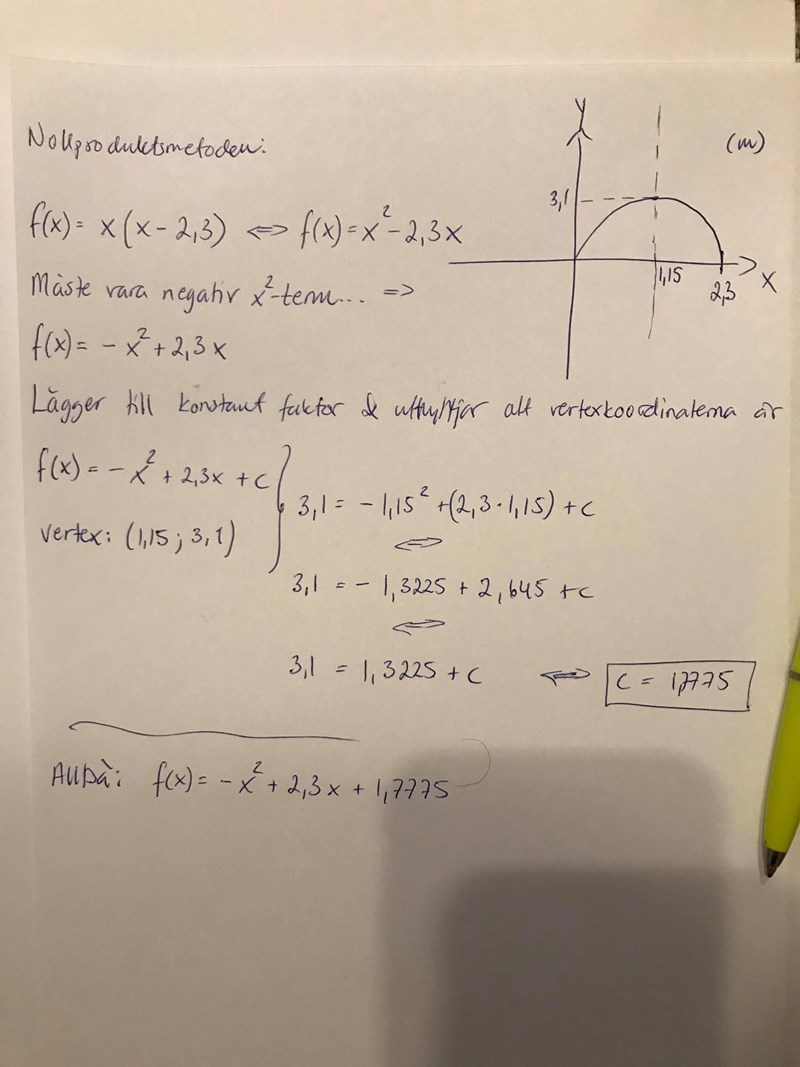 Nollproduktsmetoden:
y
(m)
3,1
1,15
2,3
x
f(x) = x(x-2,3) <=> f(x) = x² - 2,3x
Måste vara negativ x²-term... =>
f(x) = - x² + 2,3x
Lägger till konstant faktor & utnyttjar att vertexkoordinaterna är
f(x) = - x² + 2,3x + c
vertex: (1,15 ; 3,1)
3,1 = - 1,15² + (2,3 · 1,15) + c
<=>
3,1 = - 1,3225 + 2,645 + c
<=>
3,1 = 1,3225 + c <=> c = 1,7775
Alltså: f(x) = - x² + 2,3x + 1,7775